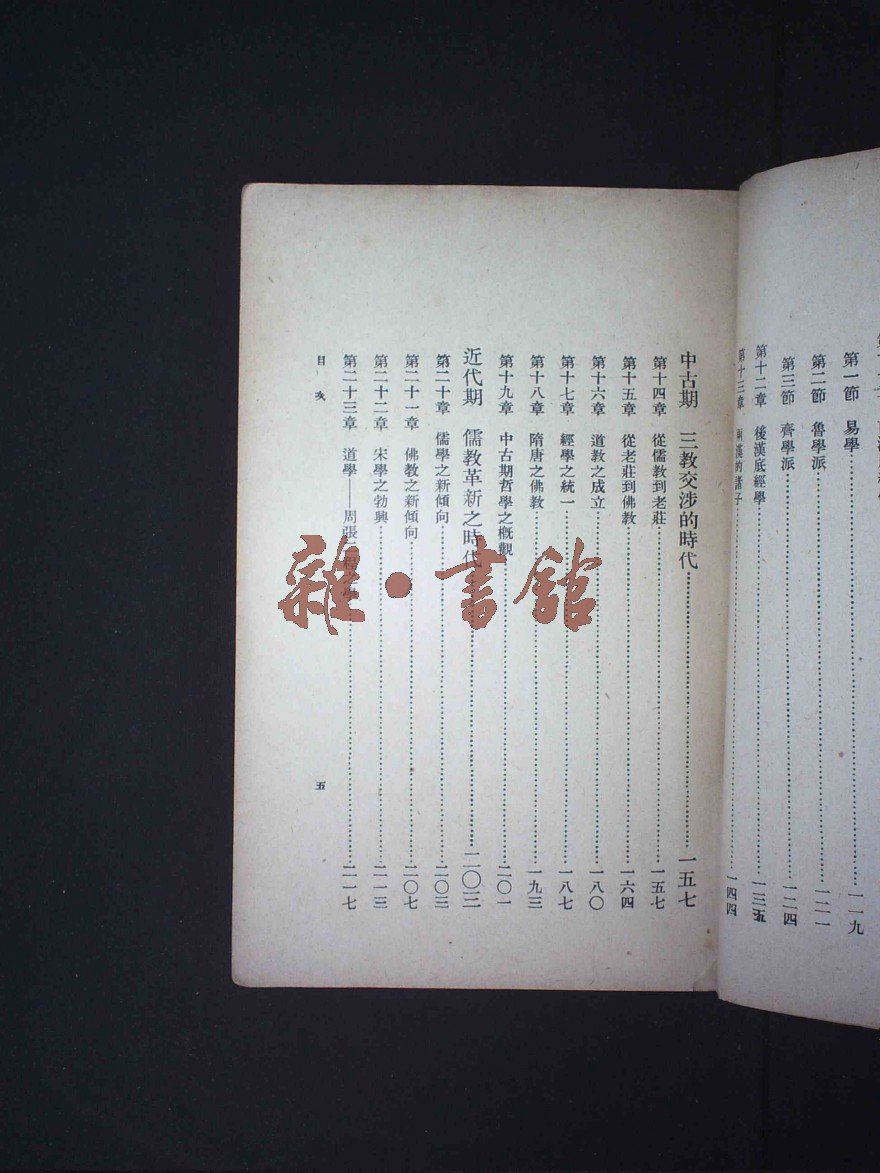 第一節 易學 一一九
第二節 魯學派 一二一
第三節 齊學派 一二四
第十二章 後漢底經學 一三五
第十三章 兩漢的諸子 一四四
中古期 三教交涉的時代 一五七
第十四章 從儒教到老莊 一五七
第十五章 從老莊到佛教 一六四
第十六章 道教之成立 一八〇
第十七章 經學之統一 一八七
第十八章 隋唐之佛教 一九三
第十九章 中古期哲學之概觀 二〇一
近代期 儒教革新之時代 二〇三
第二十章 儒學之新傾向 二〇三
第二十一章 佛教之新傾向 二〇七
第二十二章 宋學之勃興 二一三
第二十三章 道學——周張二程之學 二一七
目次 五
雜·書館